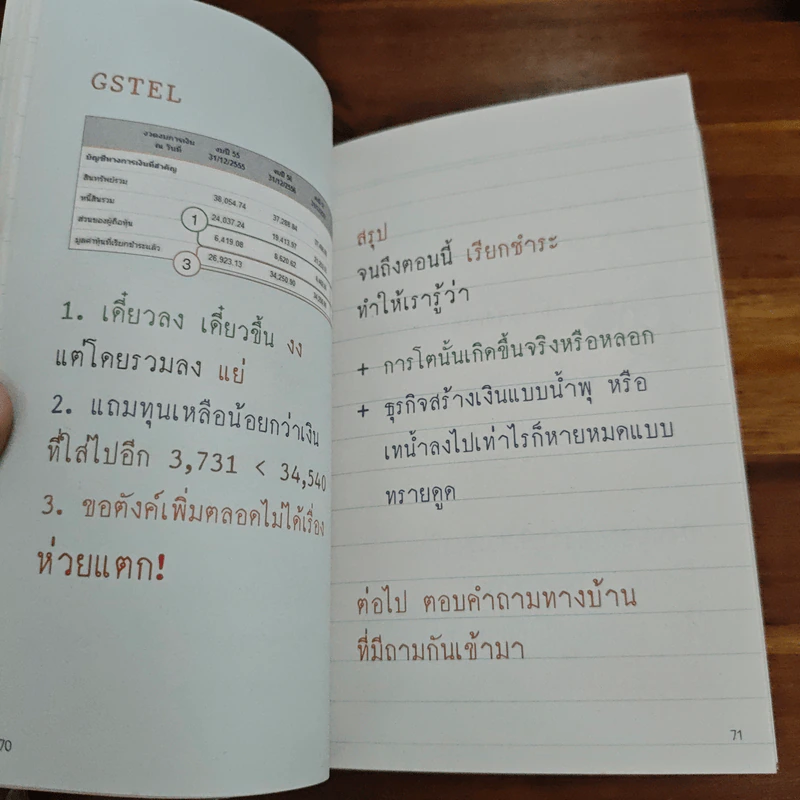 GSTEL
งวดงบการเงิน
ณ วันที่
งบปี 55
31/12/2555
งบปี 56
31/12/2556
บัญชีทางการเงินที่สำคัญ
สินทรัพย์รวม 38,054.74 37,288.84
หนี้สินรวม 24,037.24 19,413.57
ส่วนของผู้ถือหุ้น 6,419.08 8,620.62
มูลค่าหุ้นที่เรียกชำระแล้ว 26,923.13 34,250.50
1
3
1. เดี๋ยวลง เดี๋ยวขึ้น งง
แต่โดยรวมลง แย่
2. แถมทุนเหลือน้อยกว่าเงิน
ที่ใส่ไปอีก 3,731 < 34,540
3. ขอตังค์เพิ่มตลอดไม่ได้เรื่อง
ห่วยแตก!
70
สรุป
จนถึงตอนนี้ เรียกชำระ
ทำให้เรารู้ว่า
+ การโตนั้นเกิดขึ้นจริงหรือหลอก
+ ธุรกิจสร้างเงินแบบน้ำพุ หรือ
เทน้ำลงไปเท่าไรก็หายหมดแบบ
ทรายดูด
ต่อไป ตอบคำถามทางบ้าน
ที่มีถามกันเข้ามา
71